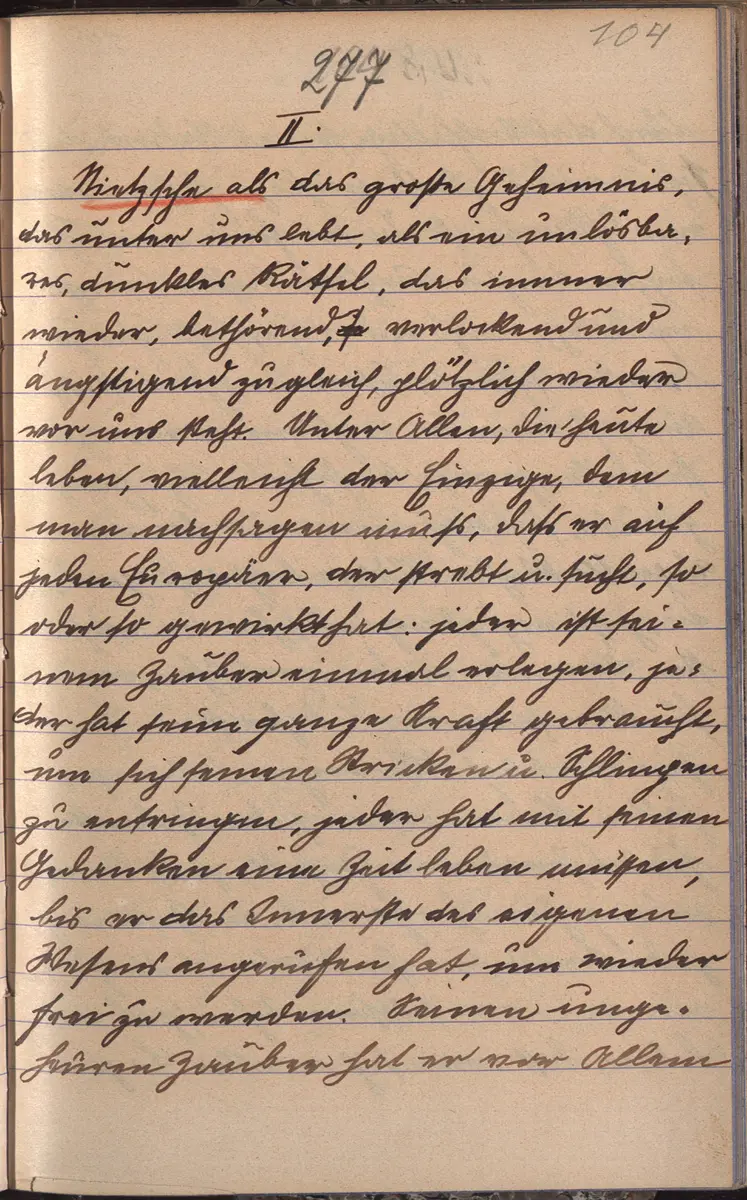 104
277
II.
Nietzsche als das große Geheimnis,
das unter uns lebt, als ein unlösba-
res, dunkles Rätsel, das immer
wieder, bethörend, verlockend und
ängstigend zugleich, plötzlich wieder
vor uns steht. Unter Allen, die heute
leben, vielleicht der Einzige, dem
man nachsagen muß, daß er auf
jeden Europäer, der strebt u. sucht, so
oder so gewirkt hat: jeder ist sei-
nem Zauber einmal erlegen, je-
der hat seine ganze Kraft gebraucht,
um sich seinen Stricken u. Schlingen
zu entringen, jeder hat mit seinen
Gedanken eine Zeit leben müssen,
bis er das Innerste des eigenen
Wesens angerufen hat, um wieder
frei zu werden. Seinen unge-
heuren Zauber hat er vor Allem